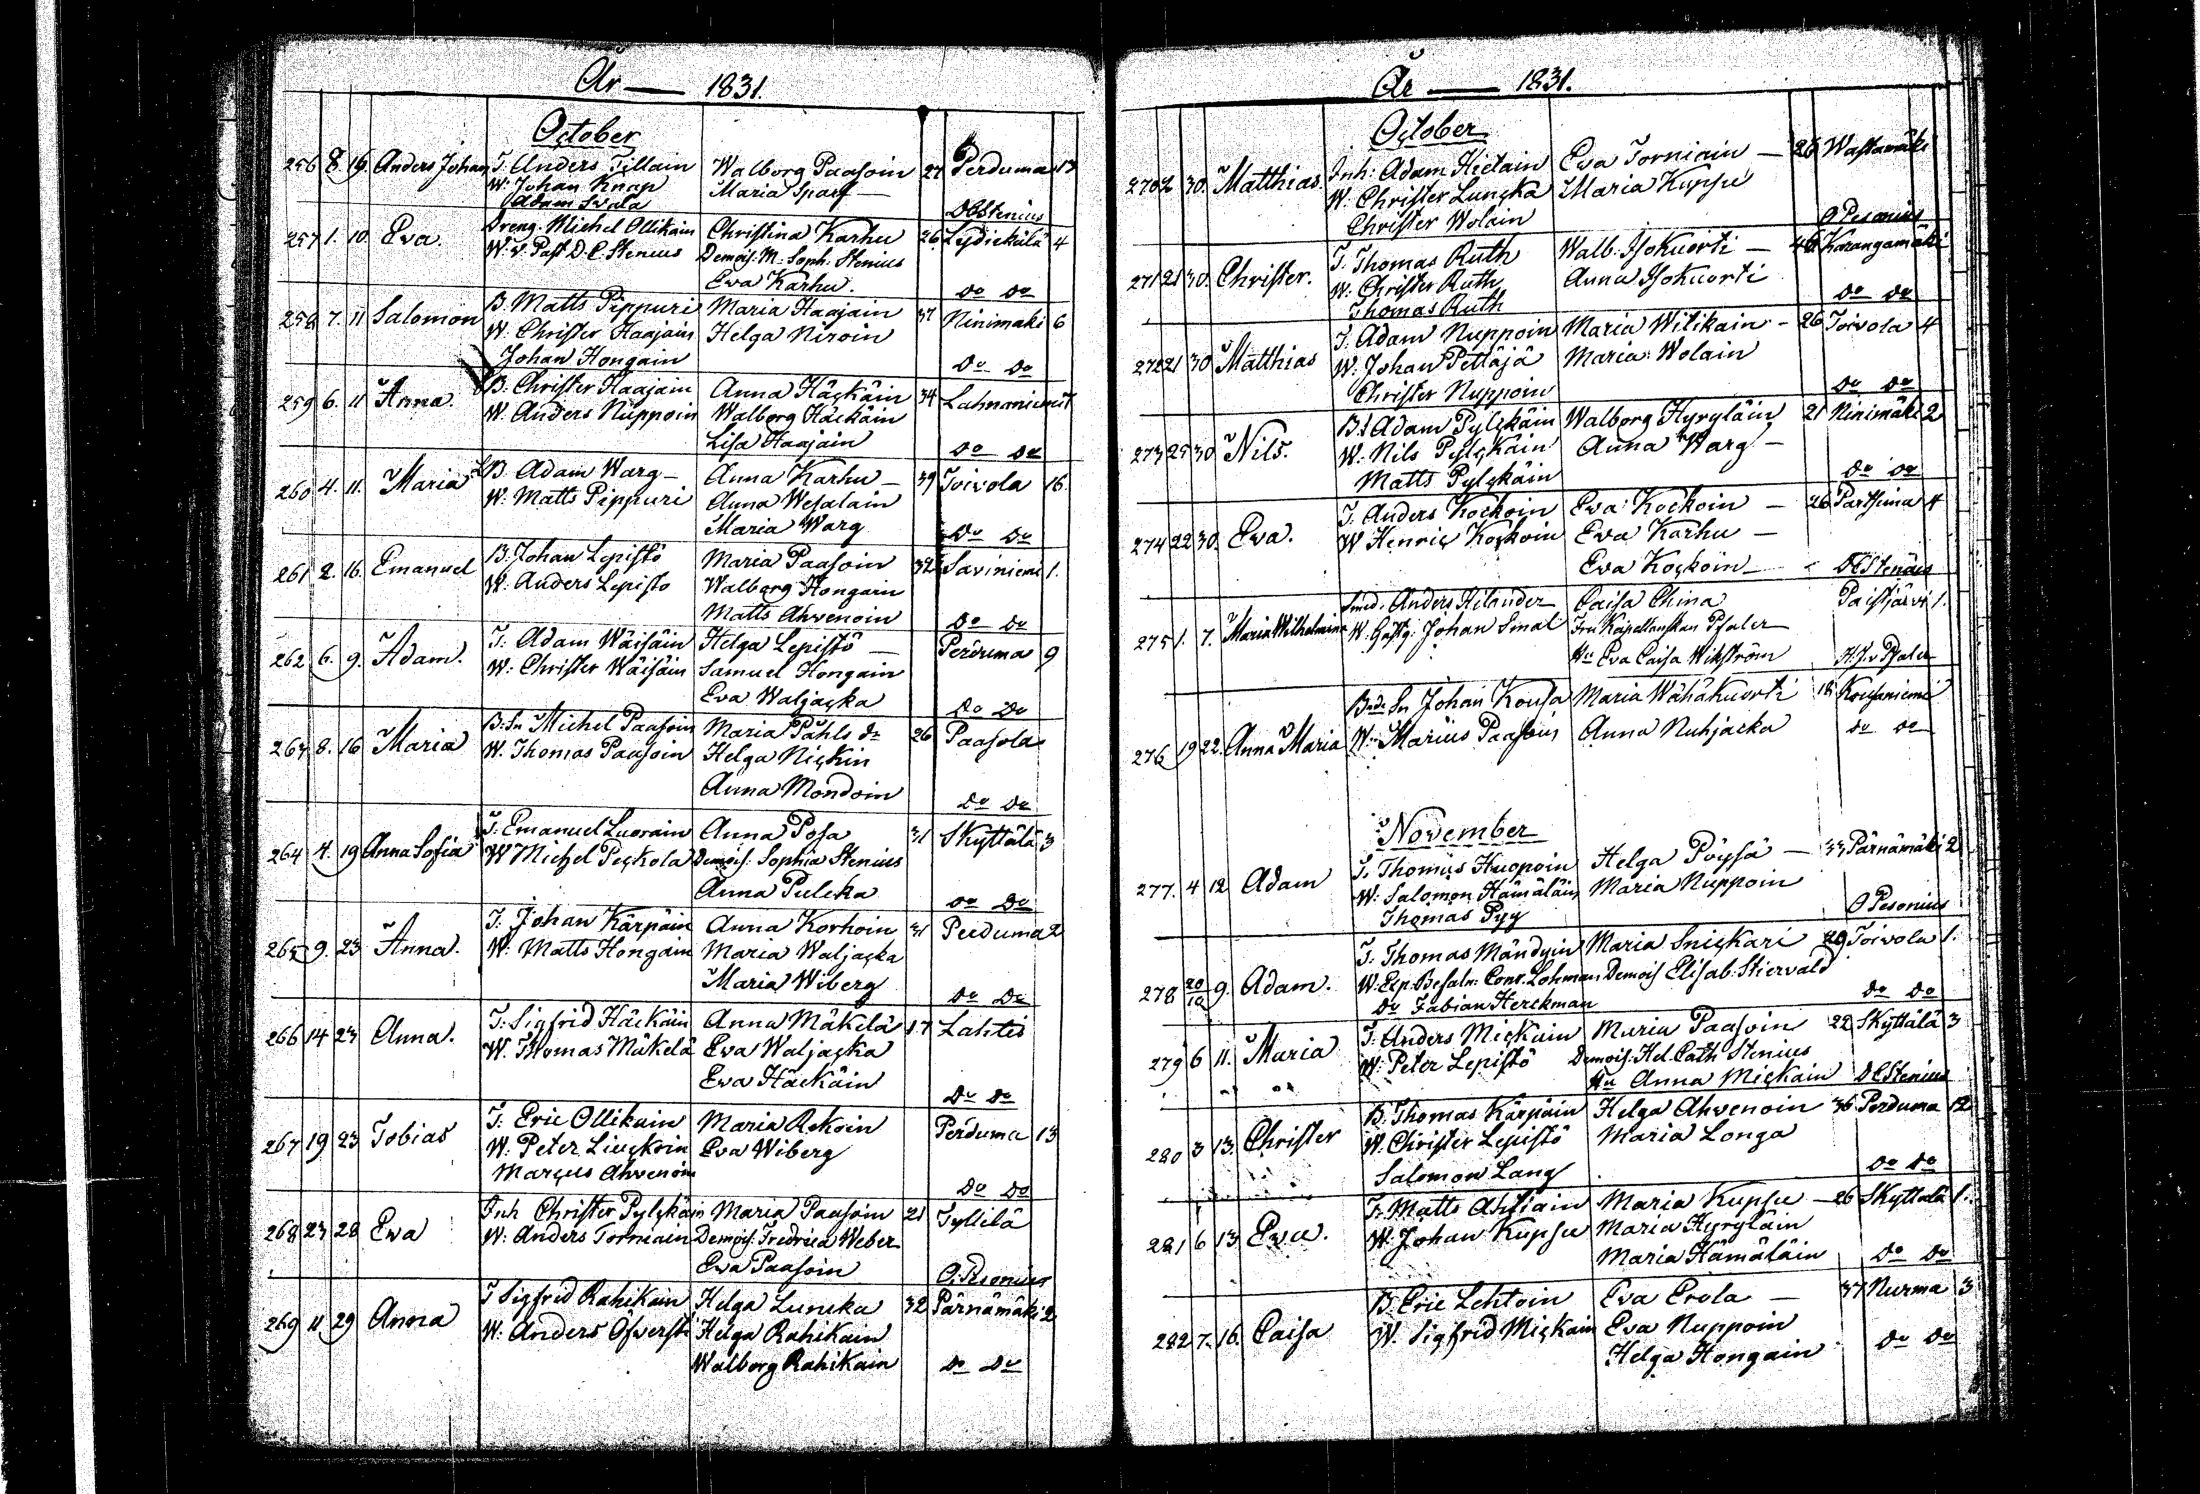 År — 1831.
October
256 8. 16. Anders Johan T. Anders Tillain Walborg Paasoin 27 Perduma 13
W. Johan Knap Maria Sparf —
Adam Svala DCStenius
257 1. 10. Eva. Dreng. Michel Ollikain Christina Karhu 26 Lydickälä 4
W. v. Past D. C. Stenius Demois. M. Soph. Stenius
Eva Karhu. Do Do
258 7. 11 Salomon B. Matts Pippuri Maria Haajain 37 Ninimäki 6
W. Christer Haajain Helga Niroin
Johan Hongain Do Do
259 6. 11 Anna. B. Christer Haajain Anna Häckäin 34 Lahnaniemi
W. Anders Nuppoin Walborg Häckäin
Lisa Haajain Do Do
260 4. 11. Maria B. Adam Warg — Anna Karhu — 39 Toivola 16.
W. Matts Pippuri Anna Wesalain
Maria Warg Do Do
261 2. 16. Emanuel B. Johan Lepistö Maria Paasoin 32 Saviniemi 1.
W. Anders Lepistö Walborg Hongain
Matts Ahvenoin Do Do
262 6. 9. Adam. T. Adam Wäisäin Helga Lepistö — Perduma 9
W. Christer Wäisäin Samuel Hongain
Eva Waljacka Do Do
263 8. 16 Maria B. Sn Michel Paasoin Maria Påhls dr 26 Paasola
W. Thomas Paasoin Helga Nickin
Anna Mondoin Do Do
264 4. 19 Anna Sofia T. Emanuel Luorain Anna Posa 31 Skyttälä 3
W Michel Peckola Demois. Sophia Stenius
Anna Pulcka Do Do
265 9. 23 Anna. T. Johan Kärpäin Anna Korhoin 31 Perduma 2
W. Matts Hongain Maria Waljacka
Maria Wiberg Do Do
266 14 23 Anna. T. Sigfrid Häckäin Anna Mäkelä 17 Lahtis
W. Thomas Mäkelä Eva Waljacka
Eva Häckäin Do Do
267 19 23 Tobias T. Eric Ollikain Maria Rekoin Perduma 13
W. Peter Liuckoin Eva Wiberg
Marcus Ahvenoin Do Do
268 23 28 Ewa Inh Christer Pylckäin Maria Paasoin 21 Tyllilä
W. Anders Torniain Demois. Fredrica Weber
Eva Paasoin O. Pesonius
269 11 29 Anna T Sigfrid Rahikain Helga Luncka 32 Pärnämäki 2
W. Anders Öfversti Helga Rahikain
Walborg Rahikain Do Do
År — 1831.
October
270 2 30. Matthias. Inh: Adam Hietain Eva Torniain — 26 Wastamäki
W. Christer Luncka Maria Kupsu
Christer Wolain O Pesonius
271 21 30. Christer. T. Thomas Ruth Walb. Isokuorti — 46 Karangamäki
W. Christer Ruth Anna Isokuorti
Thomas Ruth Do Do
272 21 30 Matthias T. Adam Nuppoin Maria Witikain — 26 Toivola 4
W. Johan Pettäjä Maria Wolain
Christer Nuppoin Do Do
273 25 30 Nils. B. Adam Pylckäin Walborg Hyryläin 21 Ninimäki 2
W. Nils Pylckäin Anna Warg —
Matts Pylckäin Do Do
274 22 30. Eva. T. Anders Kockoin Eva Kockoin — 26 Partsima 4
W Henric Kockoin Eva Karhu —
Eva Kockoin — DCStenius
275 1. 7. Maria Wilhelmina Smed. Anders Helander Caisa China Paistjärvi 1.
W. Gästg. Johan Smal Fru Kapellanskan Pfaler
Hu Eva Caisa Wikström H. J. v Pfaler
276 19 22. Anna Maria Bnde Sn Johan Kousa Maria Wähäkuorti 18 Koisaniemi
W. Marius Paasoin Anna Nuhjacka Do Do
November
277. 4 12 Adam T. Thomas Huopoin Helga Pöysä — 33 Pärnämäki 2
W. Salomon Hämäläin Maria Nuppoin
Thomas Pyy O Pesonius
278 20/10 9. Adam. T. Thomas Mändyin Maria Snickari 29 Toivola 1.
W. Exp. Befalm. Conr. Lohman Demois Elisab. Stiervald
Do Fabian Herckman Do Do
279 6 11. Maria T. Anders Mickain Maria Paasoin 22 Skyttälä 3
W. Peter Lepistö Demois. Hel. Cath Stenius
Hu Anna Mickain DCStenius
280 3 13. Christer B. Thomas Kärpäin Helga Ahvenoin 36 Perduma 12
W. Christer Lepistö Maria Longa
Salomon Lang Do Do
281 6 13 Eva. T. Matts Ahtiain Maria Kupsu — 26 Skyttälä 1.
W. Johan Kupsu Maria Hyryläin
Maria Hämäläin Do Do
282 7. 16. Caisa B. Eric Lehtoin Eva Erola — 37 Nurma 3
W. Sigfrid Mickain Eva Nuppoin
Helga Hongain Do Do